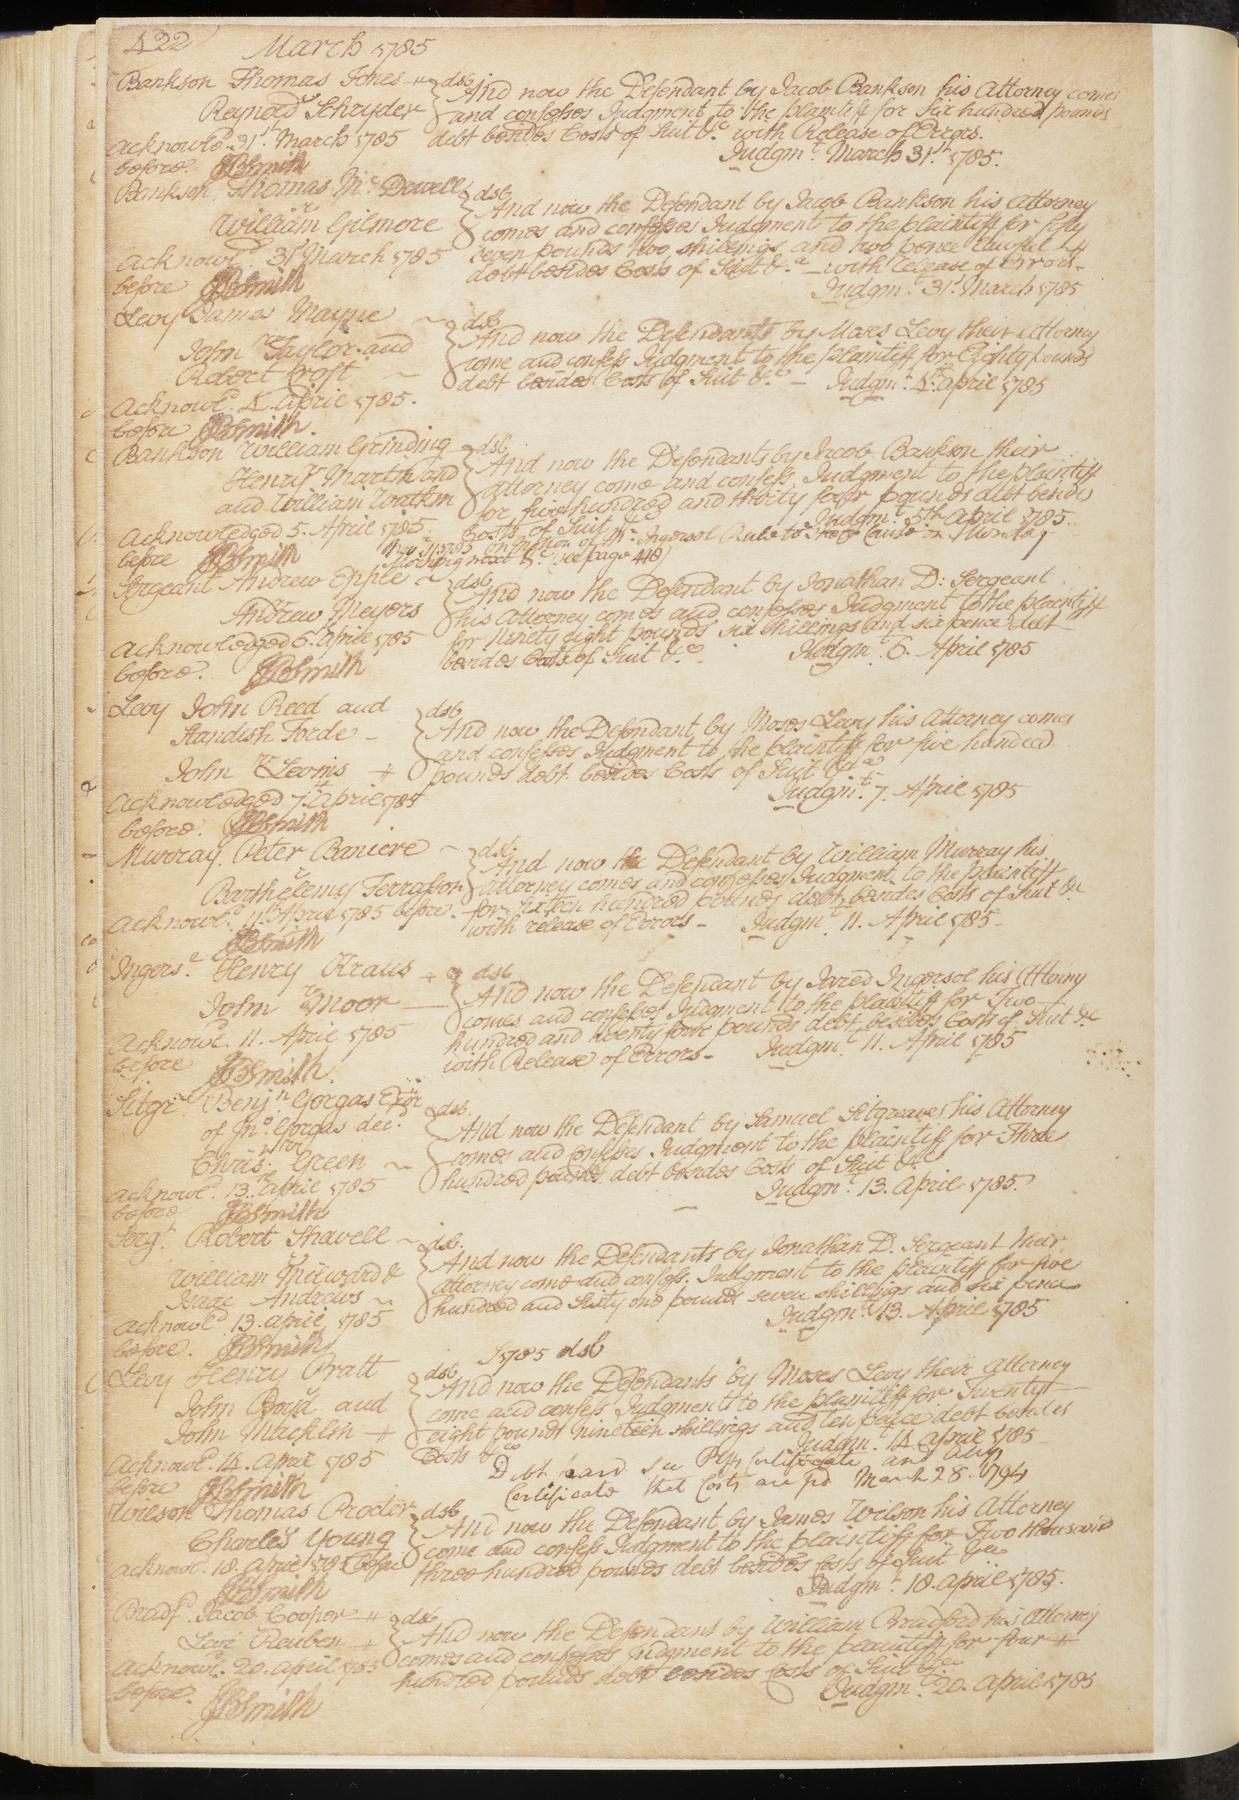 422 March 1785
Bankson Thomas Jones dsb And now the Defendant by Jacob Bankson his Attorney comes
vs Reynold Shryder and confesses Judgment to the plaintiff for Six hundred pounds
acknowl.d 31st March 1785 debt besides Costs of Suit &c with Release of Errors.
before JBSmith Judgm.t March 31st 1785.
Bankson Thomas Mc Dowell dsb And now the Defendant by Jacob Bankson his Attorney
vs William Gilmore comes and confesses Judgment to the plaintiff for fifty
acknowl.d 31st March 1785 seven pounds two shillings and two pence lawful
before JBSmith debt besides Costs of Suit &c with release of Errors
Judgm.t 31st March 1785
Levy James Mayne dsb And now the Defendants by Moses Levy their attorney
vs John Taylor and come and confess Judgment to the plaintiff for Eighty pounds
Robert Croft debt besides Costs of Suit &c Judgm.t 4th april 1785
acknowl.d 4. april 1785.
before JBSmith
Bankson William Grinding dsb And now the Defendants by Jacob Bankson their
vs Henry Martin and attorney come and confess Judgment to the plaintiff
and William for five hundred and thirty four pounds debt besides
acknowledged 5. April 1785. Costs of Suit Judgm.t 5th April 1785.
before JBSmith on Motion of Mr. Ingersol Rule to Shew Cause on Monday
Morning next &c (see page 418)
Sergeant Andrew Epple dsb And now the Defendant by Jonathan D: Sergeant
vs Andrew Meyers his Attorney comes and confesses Judgment to the plaintiff
acknowledged 6. april 1785 for Ninety eight pounds six shillings and six pence debt
before. JBSmith besides Costs of Suit &c Judgm.t 6. April 1785
Levy John Reed and dsb And now the Defendant by Moses Levy his attorney comes
Standish Forde and confesses Judgment to the plaintiff for five hundred
vs John Lewis pounds debt besides Costs of Suit &ca
acknowledged 7th april 1785 Judgm.t 7. April 1785
before. JBSmith
Murray Peter Baniere dsb And now the Defendant by William Murray his
vs Barthelemy Terrasson attorney comes and confesses Judgment to the plaintiff
acknowl.d 11th April 1785 before for sixteen hundred pounds debt besides Costs of Suit &c
JBSmith with release of Errors Judgm.t 11. April 1785
Ingers.l Henry Kraus dsb And now the Defendant by Jared Ingersol his Attorny
vs John Moor comes and confesses Judgment to the plaintiff for Two
acknowl.d 11. April 1785 hundred and twenty four pounds debt besides Costs of Suit &c
before JBSmith with Release of Errors Judgm.t 11. April 1785
Sitgr.s Benj.n Gorgas Exor dsb And now the Defendant by Samuel Sitgreaves his Attorney
of Jno. Gorgas dec.d comes and confesses Judgment to the plaintiff for Three
vs Chris. Green hundred pounds debt besides Costs of Suit &c
acknowl.d 13. april 1785 Judgm.t 13. April 1785.
before JBSmith
Serg.t Robert Shewell dsb. And now the Defendants by Jonathan D. Sergeant their
vs William Milward & attorney come and confess Judgment to the plaintiff for five
Isaac Andrews hundred and Sixty one pounds seven shillings and six pence
acknowl.d 13. april 1785 Judgm.t 13. April 1785
before. JBSmith
1785 dsb
Levy Henry Pratt dsb And now the Defendants by Moses Levy their attorney
vs John Boyd and come and confess Judgment to the plaintiff for Twenty
John Macklin eight pounds nineteen shillings and ten pence debt besides
acknowl.d 14. april 1785 Costs &ca Judgm.t 14. april 1785
before JBSmith Debt paid see Plffs Certificate and also
Certificate that Costs are pd March 28. 1794
Wilson Thomas Procter dsb And now the Defendant by James Wilson his Attorney
vs Charles Young come and confess Judgment to the plaintiff for Two thousand
acknowl. 18. april 1785 before three hundred pounds debt besides Costs of Suit &ca
JBSmith Judgm.t 18. april 1785.
Bradf.d Jacob Cooper dsb And now the Defendant by William Bradford his attorney
vs Levi Reuben comes and confesses Judgment to the plaintiff for four
acknowl.d 20. april 1785 hundred pounds debt besides Costs of Suit &ca
before. JBSmith Judgm.t 20. april 1785